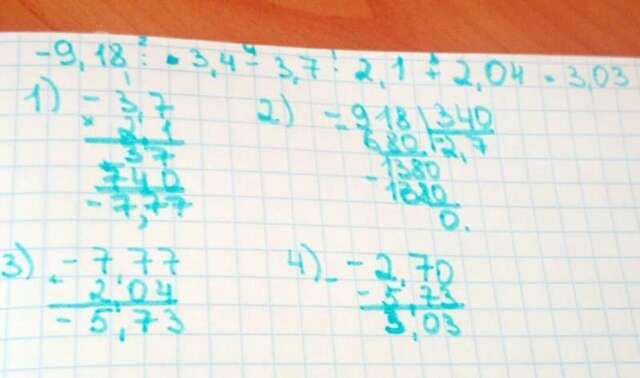 -9,18 : 3,4 - 3,7 · 2,1 + 2,04 = 3,03
1) - 3,7
× 2,1
37
740
-7,77
2) -9,18 | 340
680 | -2,7
- 2380
0.
3) -7,77
+ 2,04
-5,73
4) - -2,70
-5,73
3,03